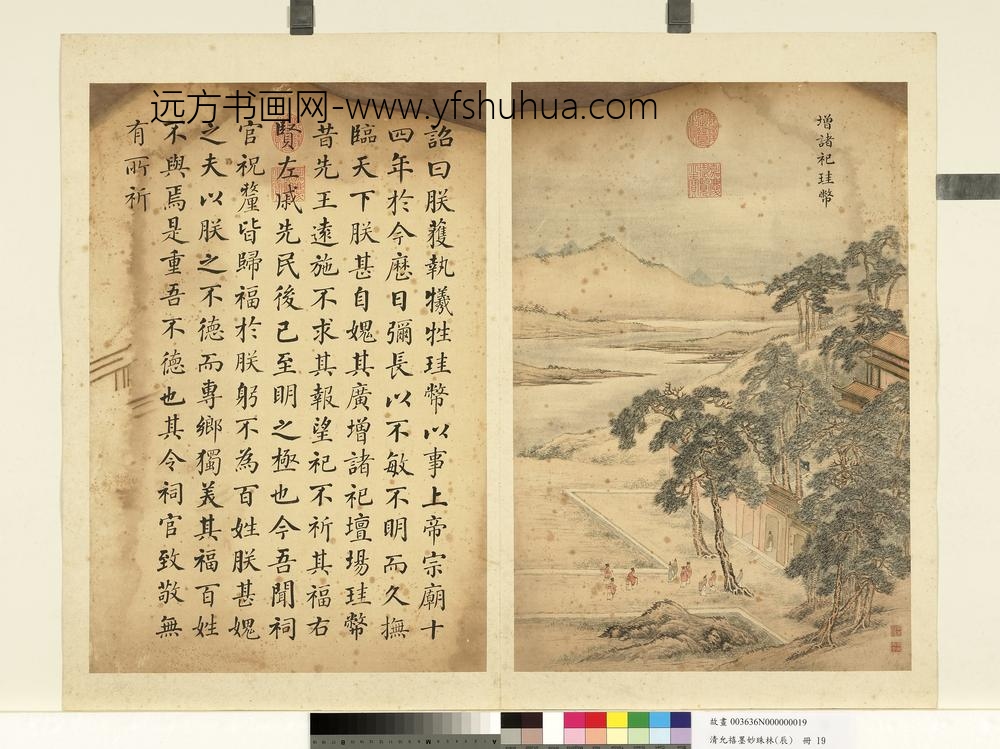 远方书画网-www.yfshuhua.com
增諸祀珪幣
詔曰朕獲執犧牲珪幣以事上帝宗廟十
四年於今歷日彌長以不敏不明而久撫
臨天下朕甚自媿其廣增諸祀壇場珪幣
昔先王遠施不求其報望祀不祈其福右
賢左戚先民後已至明之極也今吾聞祠
官祝釐皆歸福於朕躬不為百姓朕甚媿
之夫以朕之不德而專鄉獨美其福百姓
不與焉是重吾不德也其令祠官致敬無
有所祈
故畫 003636N000000019
清允禧墨妙珠林(辰) 冊 19